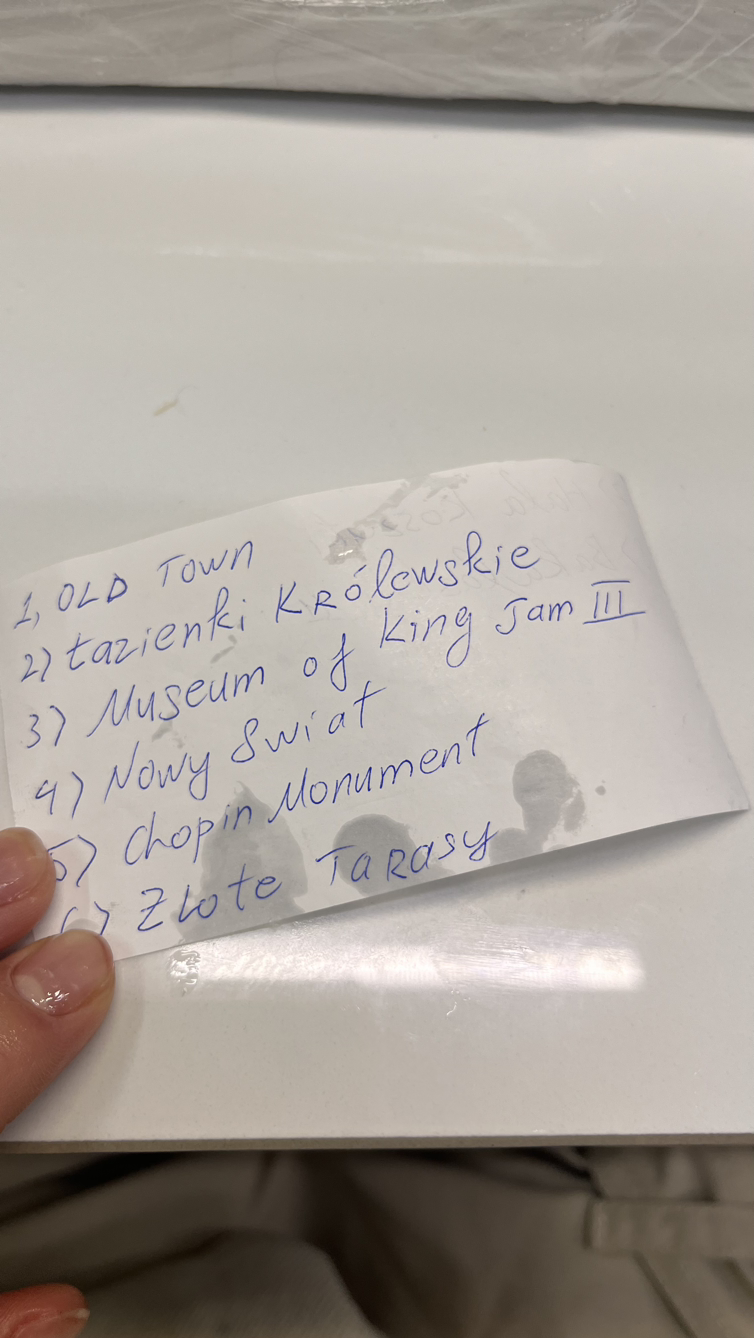 1, OLD TOWN
2) Łazienki KRólewskie
3) Museum of King Jam III
4) Nowy Swiat
5) Chopin Monument
6) ZLote TARASY